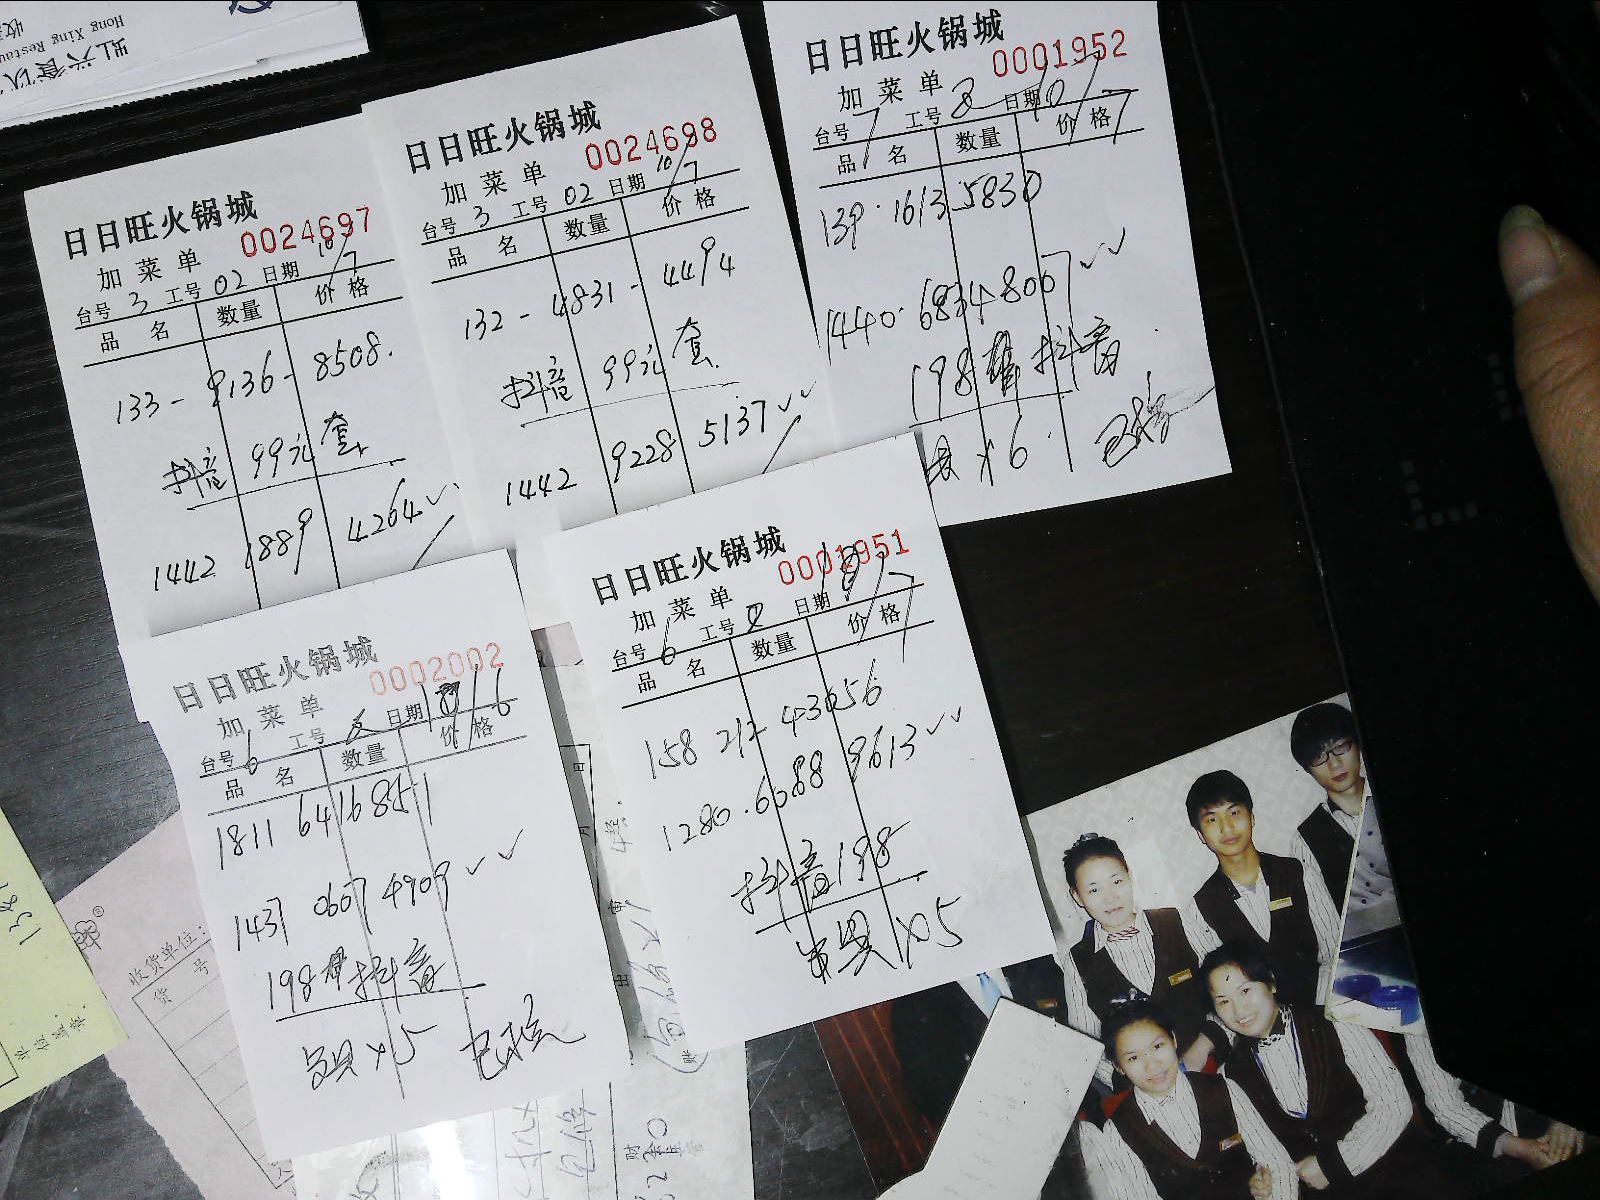 Hong Xing Restau
日日旺火锅城
0024697
加菜单
台号 3 工号 02 日期 10/7
品名 数量 价格
133 - 9136 - 8508.
抖音 99元 套
1442 1889 4264
日日旺火锅城
0024698
加菜单
台号 3 工号 02 日期 10/7
品名 数量 价格
132 - 4831 - 4494
抖音 99元 套
1442 9228 5137
日日旺火锅城
0001952
加菜单
台号 7 工号 日期 10/7
品名 数量 价格
139·1613 5830
1440·6834 8007
198 抖音
x6
日日旺火锅城
0002002
加菜单
台号 6 工号 日期 10/6
品名 数量 价格
1811 6416 8851
1437 0607 4909
198 抖音
x5 已核
日日旺火锅城
0001951
加菜单
台号 6 工号 日期 10/7
品名 数量 价格
158 212 43656
1280·6688 9613
抖音198
x5
收货单位:
货号